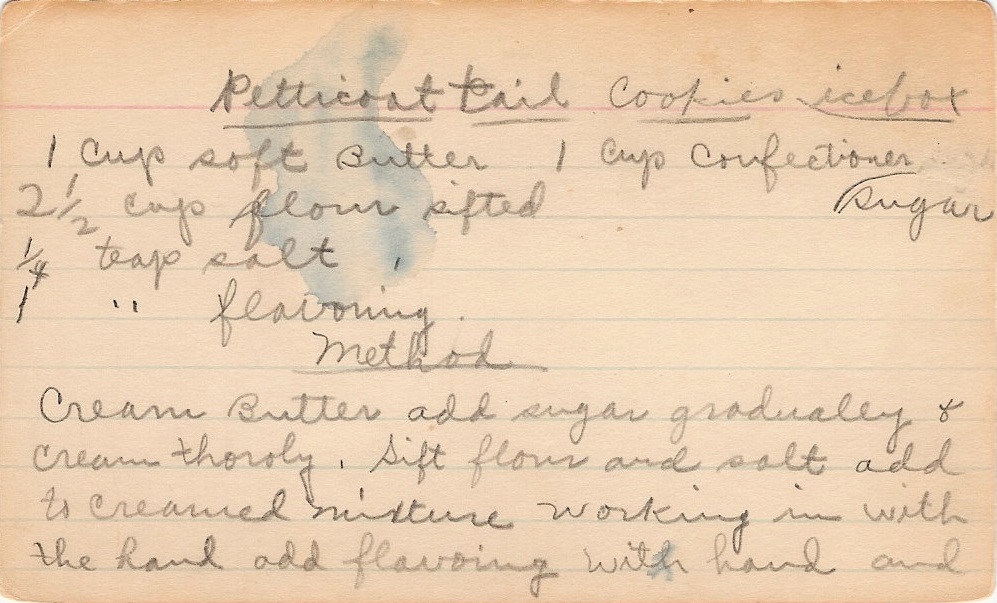 Petticoat tail Cookies icebox
1 Cup soft Butter 1 Cup Confectioner
2 1/2 cup flour sifted sugar
1/4 teap salt
1 " flavoring.
Method
Cream Butter add sugar gradualey &
cream thoroly. Sift flour and salt add
to creamed mixture working in with
the hand add flavoing with hand and